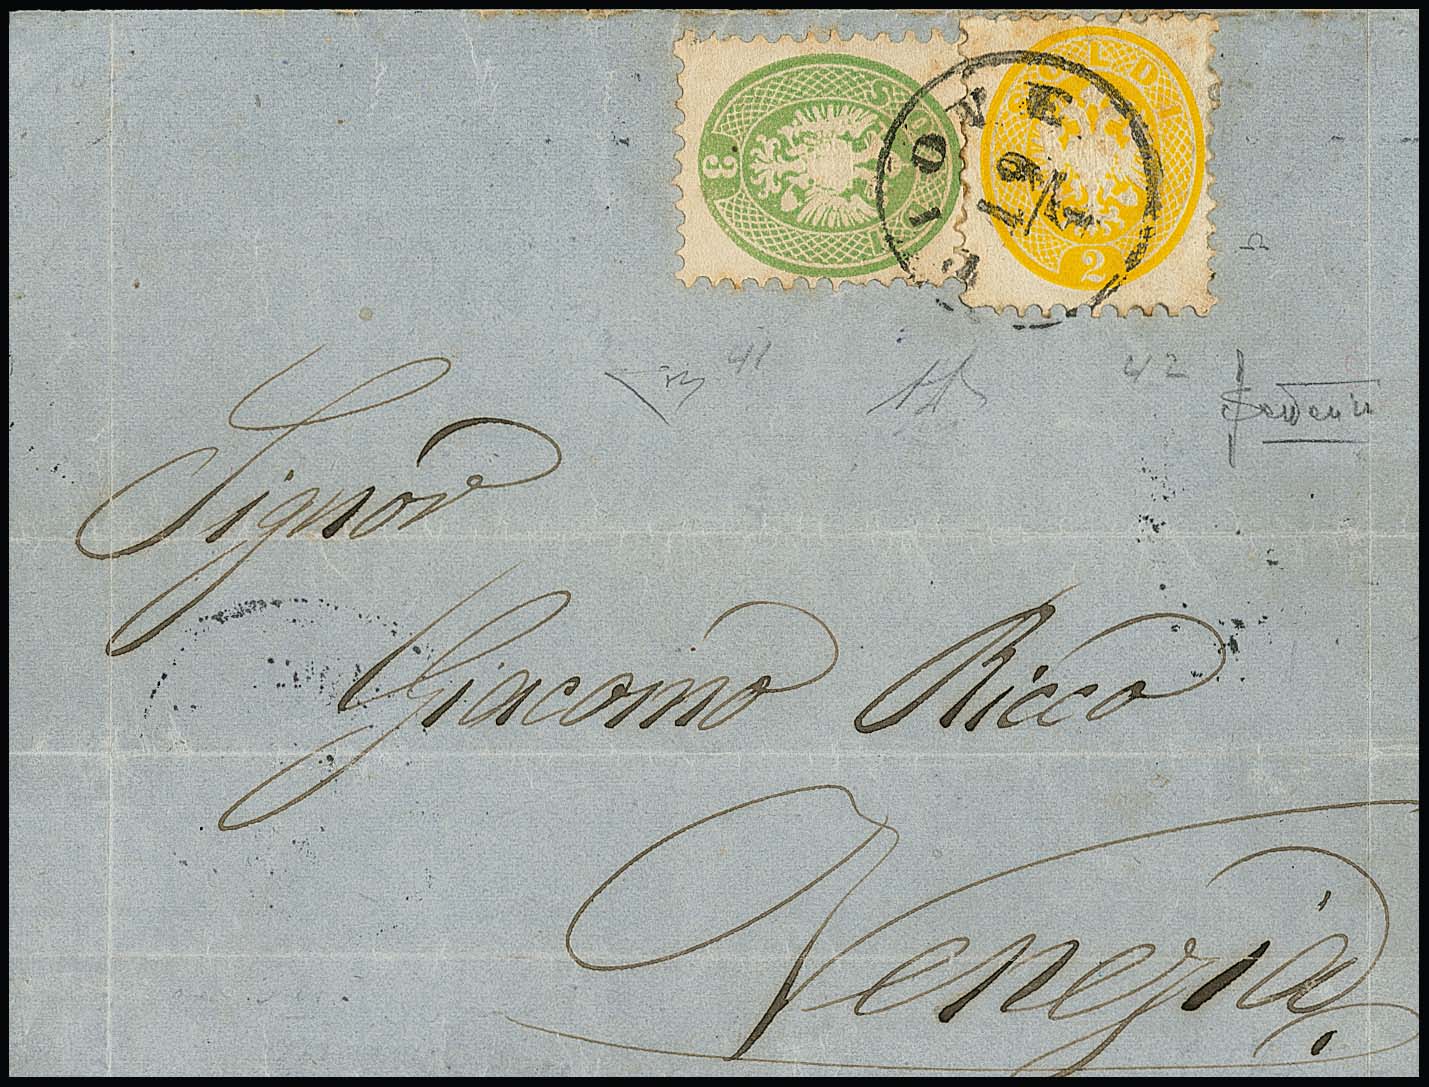 SOLDI
3
SOLDI
2
PIOVE
19/
41
42
Signor
Giacomo Ricco
Venezia